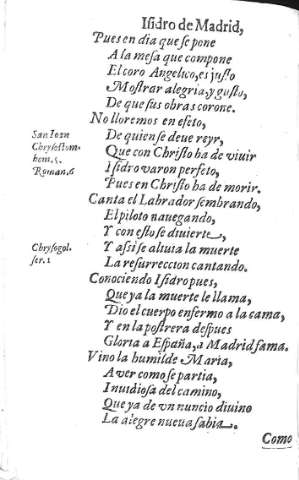 Isidro de Madrid,
Pues en dia que se pone
A la mesa que compone
El coro Angelico, es justo
Mostrar alegria, y gusto,
De que sus obras corone.
No lloremos en efeto,
San Ioan
Chrysostom.
hom. 5.
Roman. 6
De quien se deue reyr,
Que con Christo ha de viuir
Isidro varon perfeto,
Pues en Christo ha de morir.
Canta el Labrador sembrando,
El piloto nauegando,
Y con esto se diuierte,
Chrysogol.
ser. 1
Y assi se aliuia la muerte
La resurreccion cantando.
Conociendo Isidro pues,
Que ya la muerte le llama,
Dio el cuerpo enfermo a la cama,
Y en la postrera despues
Gloria a España, a Madrid fama.
Vino la humilde Maria,
A ver como se partia,
Inuidiosa del camino,
Que ya de vn nuncio diuino
La alegre nueua sabia.
Como